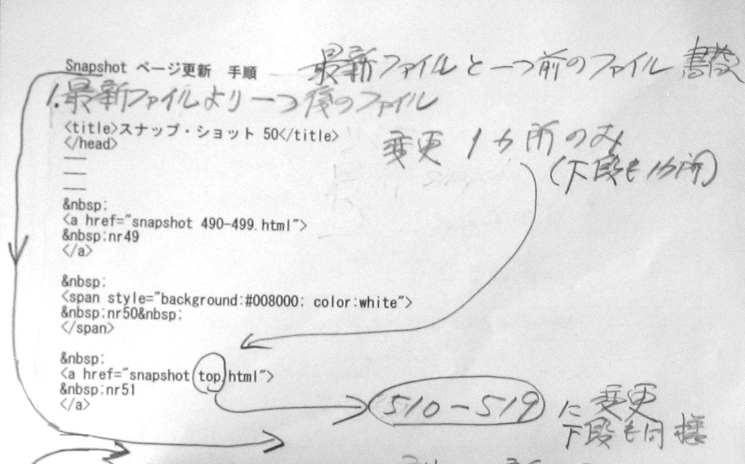 Snapshot ページ更新 手順
最新ファイルと一つ前のファイル
1.最新ファイルより一つ後のファイル
<title>スナップ・ショット 50</title>
</head>
変更 1ヵ所のみ
(下段も1ヵ所)
&nbsp;
<a href="snapshot 490-499.html">
&nbsp;nr49
</a>
&nbsp;
<span style="background:#008000; color:white">
&nbsp;nr50&nbsp;
</span>
&nbsp;
<a href="snapshot top.html">
&nbsp;nr51
</a>
510-519 に変更
下段も同様